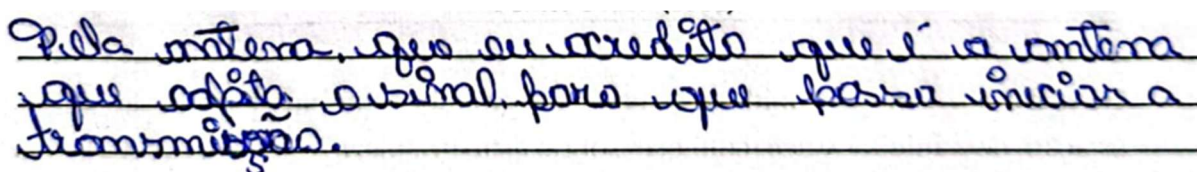 Pela antena, que eu acredito que é a antena
que adpita o sinal, para que possa iniciar a
transmissão.